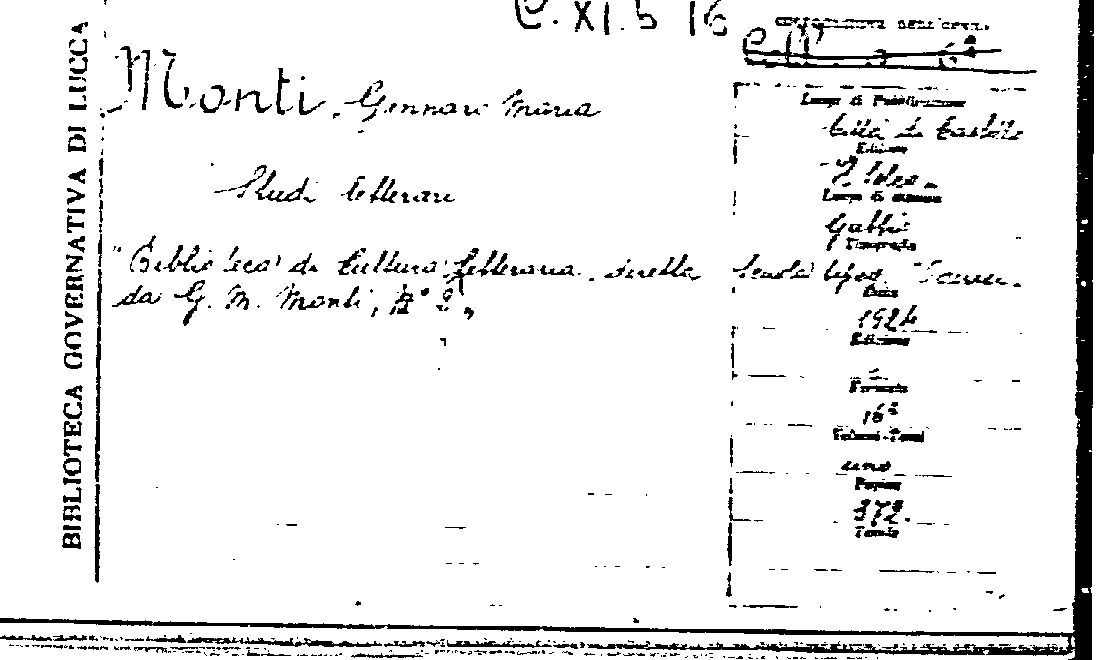 C. XI. b 16
COLLOCAZIONE DELL'OPERA
BIBLIOTECA GOVERNATIVA DI LUCCA
Monti, Gennaro Maria
Studi letterari
"Biblioteca di Cultura letteraria, diretta
da G. M. Monti, N° 2„
Luogo di Pubblicazione
Città di Castello
Editore
"Il Solco„
Luogo di stampa
Tipografia
Scuola tipog.
Data
1924
Edizione
Formato
16°
Volumi-Tomi
uno
Pagine
372.
Tavole